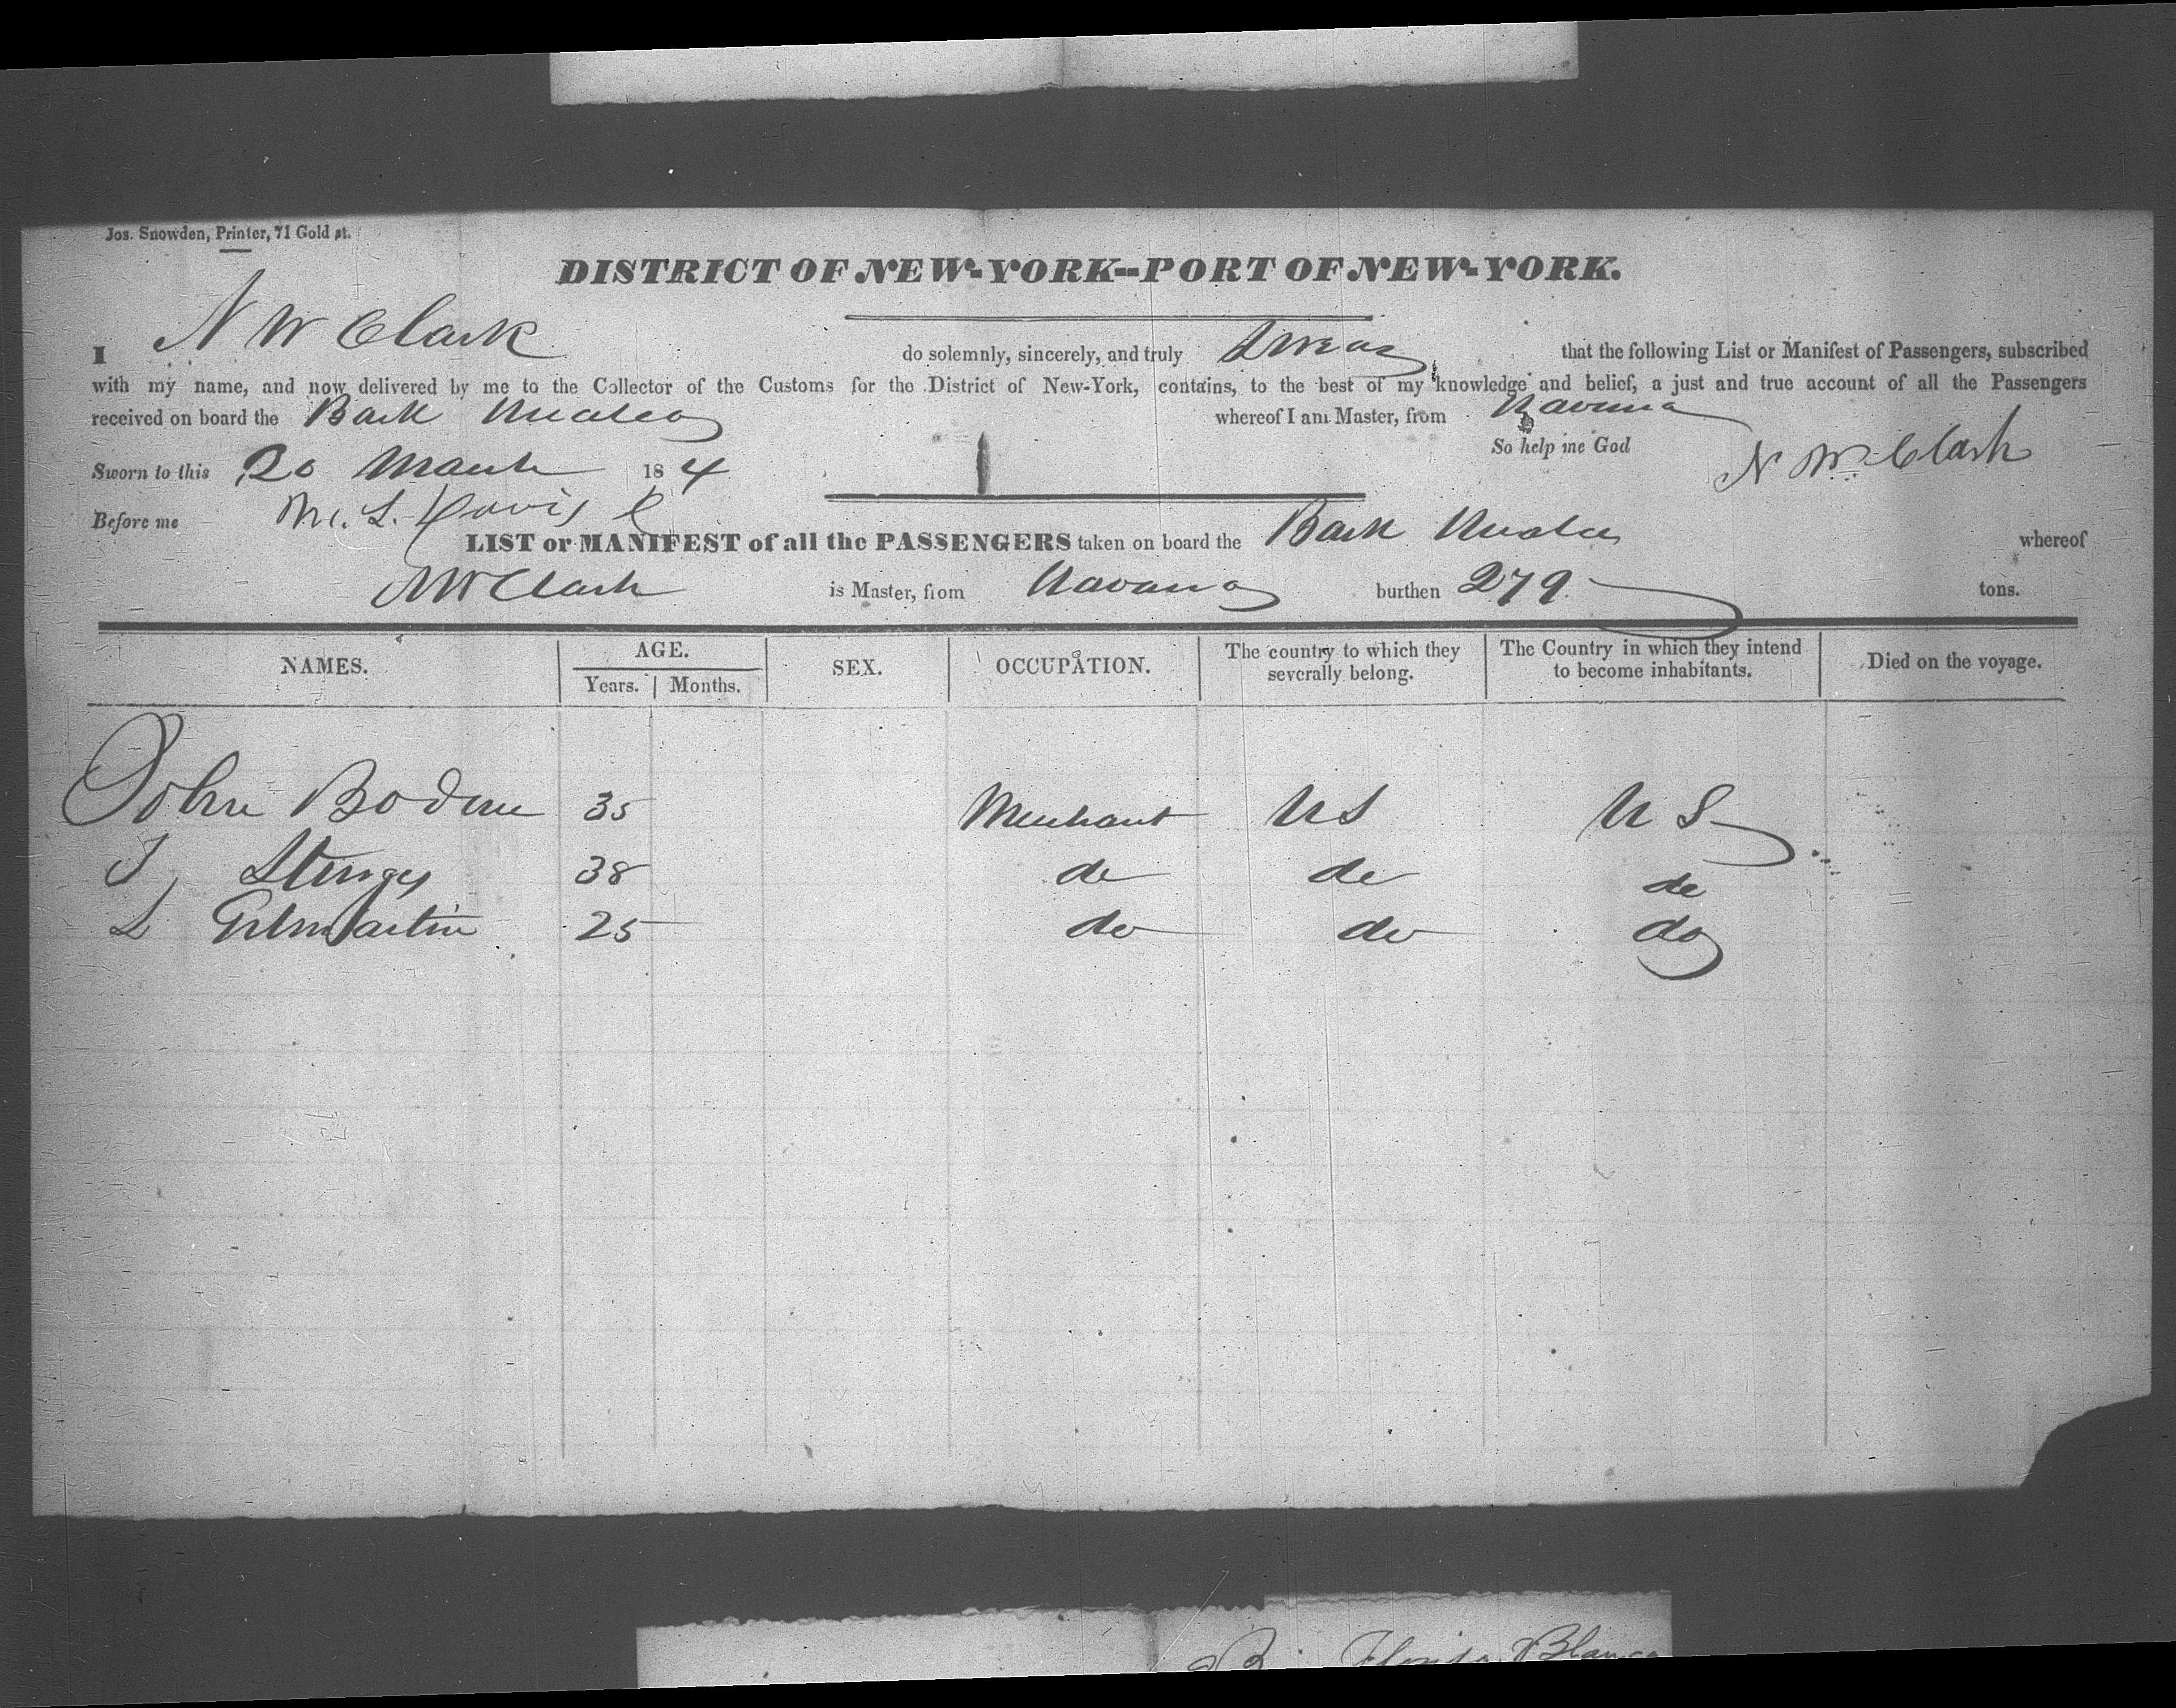 Jos. Snowden, Printer, 71 Gold st.
DISTRICT OF NEW-YORK--PORT OF NEW-YORK.
I N W Clark do solemnly, sincerely, and truly swear that the following List or Manifest of Passengers, subscribed
with my name, and now delivered by me to the Collector of the Customs for the District of New-York, contains, to the best of my knowledge and belief, a just and true account of all the Passengers
received on board the Bark whereof I am Master, from Havana
So help me God N W Clark
Sworn to this 20 March 184
Before me M. L. Davis
LIST or MANIFEST of all the PASSENGERS taken on board the Bark whereof
N W Clark is Master, from Havana burthen 279 tons.
NAMES. AGE. Years. Months. SEX. OCCUPATION. The country to which they severally belong. The Country in which they intend to become inhabitants. Died on the voyage.
John 35 Merchant U S U S
J Sturges 38 do do do
L Gilmartin 25 do do do
Florida Blanca